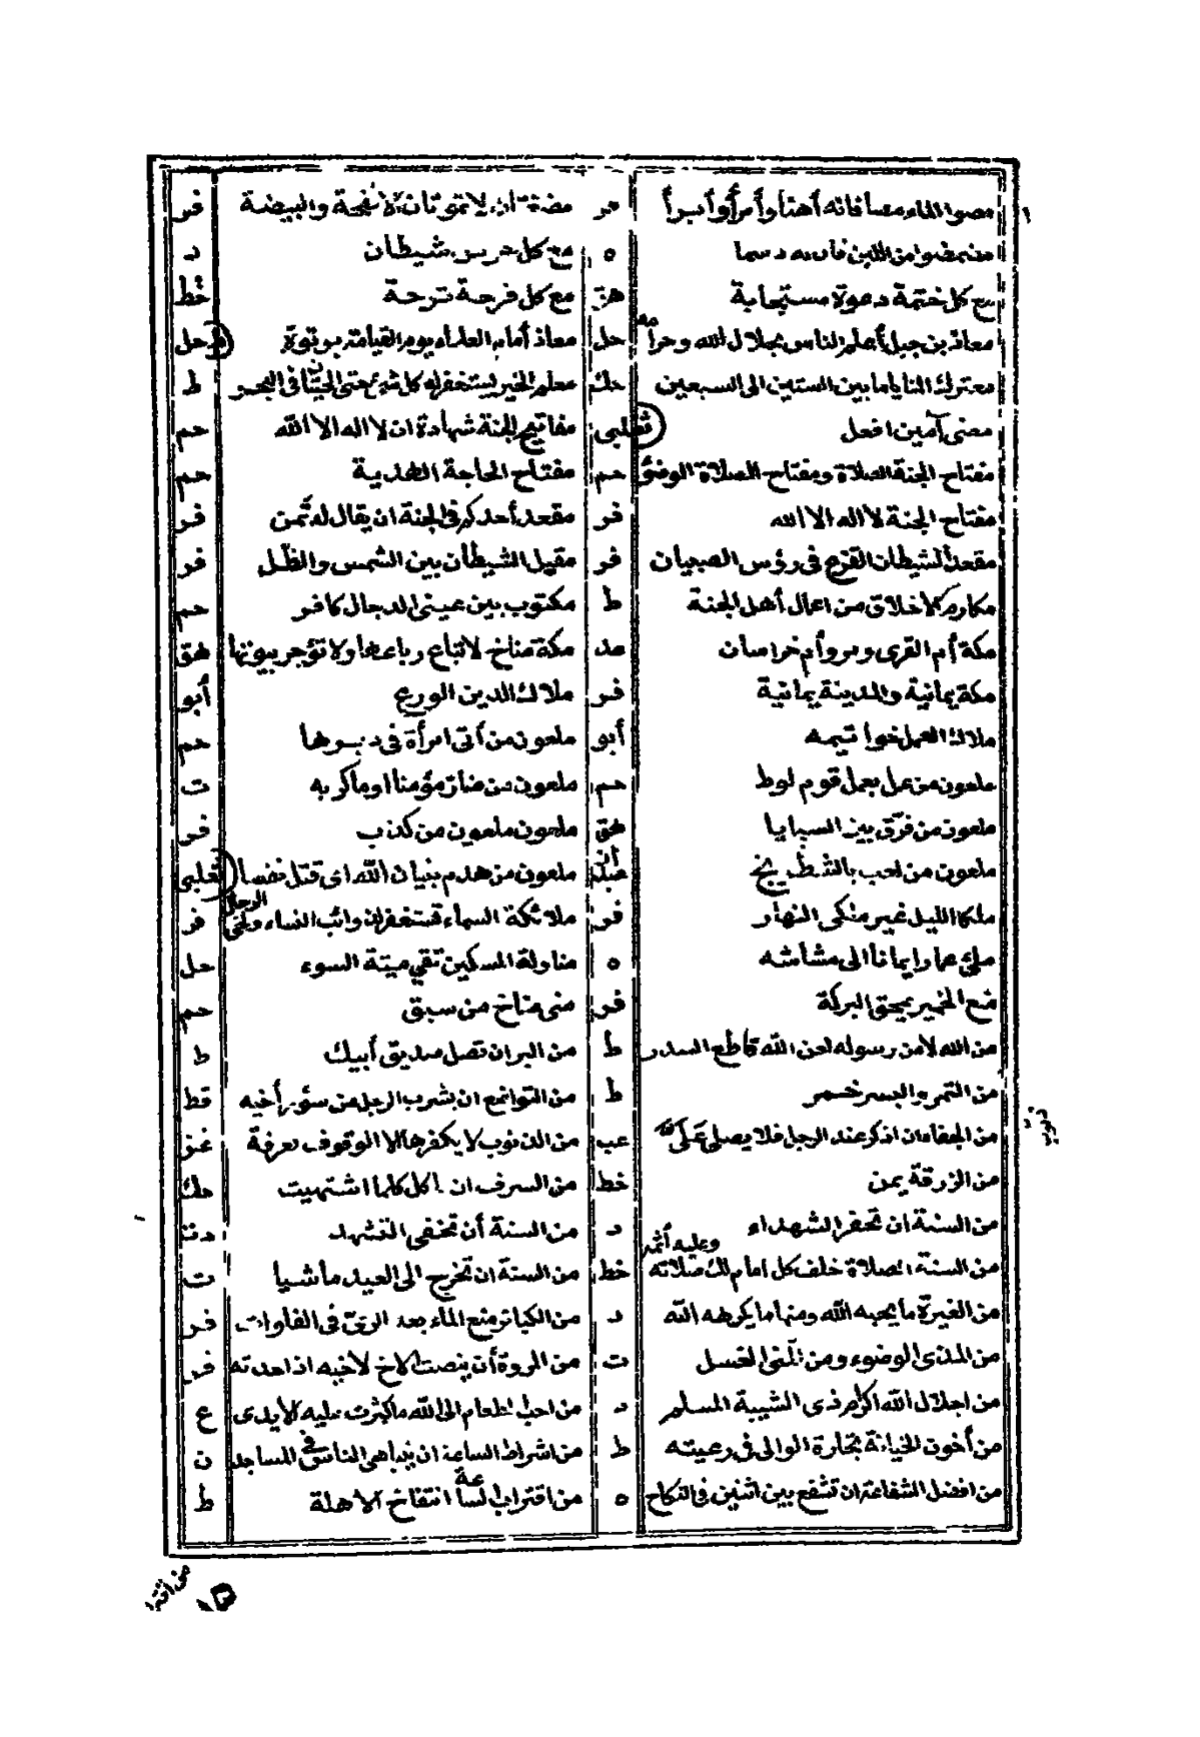 مصوا الماء مصا فانه أهنأ وأمرأ وأبرأ | فر | مضغتان لا تموتان الأنفحة والبيضة | فر
مضمضوا من اللبن فان له دسما | ه | مع كل جرس شيطان | د
مع كل ختمة دعوة مستجابة | هق | مع كل فرحة ترحة | خط
معاذ بن جبل أعلم الناس بحلال الله وحرامه | حل | معاذ أمام العلماء يوم القيامة برتوة | ط حل
معترك المنايا ما بين الستين الى السبعين | حك | معلم الخير يستغفر له كل شئ حتى الحيتان في البحر | ط
معنى آمين افعل | ثعلبى | مفاتيح الجنة شهادة ان لا اله الا الله | حم
مفتاح الجنة الصلاة ومفتاح الصلاة الوضؤ | حم | مفتاح الحاجة الهدية | حم
مفتاح الجنة لا اله الا الله | فر | مقعد أحدكم في الجنة ان يقال له تمن | فر
مقعد الشيطان القزع في رؤس الصبيان | فر | مقيل الشيطان بين الشمس والظل | فر
مكارم الاخلاق من اعمال أهل الجنة | ط | مكتوب بين عينى الدجال كافر | حم
مكة أم القرى ومرو أم خراسان | عد | مكة مناخ لا تباع رباعها ولا تؤجر بيوتها | هق
مكة يمانية والمدينة يمانية | فر | ملاك الدين الورع | أبو
ملاك العمل خواتيمه | أبو | ملعون من أتى امرأة في دبرها | حم
ملعون من عمل بعمل قوم لوط | حم | ملعون من ضار مؤمنا او ماكر به | ت
ملعون من فرق بين السبايا | هق | ملعون ملعون من كذب | فر
ملعون من لعب بالشطرنج | عبدان | ملعون من هدم بنيان الله اى قتل نفسا | ثعلبى
ملكا الليل غير ملكى النهار | فر | ملائكة السماء تستغفر لذوائب النساء ولحى الرجال | فر
ملئ عمار ايمانا الى مشاشه | ه | مناولة المسكين تقى ميتة السوء | حل
منع الخمير يمحق البركة | فر | منى مناخ من سبق | حم
من الله لا من رسوله لعن الله قاطع السدر | ط | من البر ان تصل صديق أبيك | ط
من التمر والبسر خمر | ط | من التواضع ان يشرب الرجل من سؤر أخيه | قط
من الجفاء ان اذكر عند الرجل فلا يصلى على | عب | من الذنوب لا يكفرها الا الوقوف بعرفة | غز
من الزرقة يمن | خط | من السرف ان تاكل كلما اشتهيت | حك
من السنة ان تحفر الشهداء | د | من السنة أن تخفى التشهد | دت
من السنة الصلاة خلف كل امام لك صلاته وعليه أثمه | خط | من السنة ان تخرج الى العيد ماشيا | ت
من الغيرة ما يحبه الله ومنها ما يكرهه الله | د | من الكبائر منع الماء بعد الرى في الفلوات | فر
من المذى الوضوء ومن المنى الغسل | ت | من المروة أن ينصت الاخ لاخيه اذا حدثه | فر
من اجلال الله اكرام ذى الشيبة المسلم | د | من احب الطعام الى الله ما كثرت عليه الأيدى | ع
من أخون الخيانة تجارة الوالى في رعيته | ط | من اشراط الساعة ان يتباهى الناس في المساجد | ن
من افضل الشفاعة ان تشفع بين اثنين في النكاح | ه | من اقتراب الساعة انتفاخ الاهلة | ط